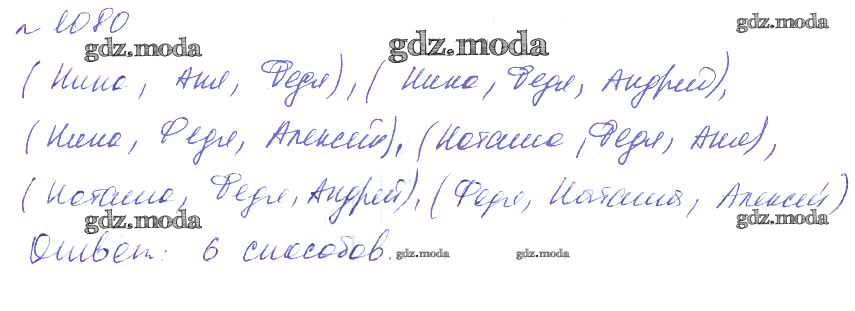 № 1080
gdz.moda gdz.moda gdz.moda
(Нина, Аня, Федя), (Нина, Федя, Андрей),
(Нина, Федя, Алексей), (Наташа, Федя, Аня),
(Наташа, Федя, Андрей), (Федя, Наташа, Алексей)
gdz.moda gdz.moda
Ответ: 6 способов.
gdz.moda gdz.moda